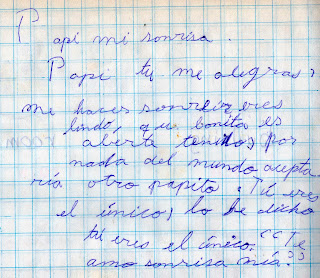 Papi mi sonrisa.
Papi tu me alegras,
me haces sonreir, eres
lindo, que bonita es
aberte tenido, por
nada del mundo acepta
ria otro papito. Tú eres
el único, lo he dicho
tú eres el único. "Te
amo sonrisa mía"